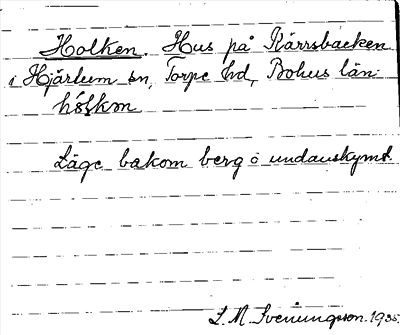 Holken. Hus på Kärrsbacken
i Hjärtum sn, Torpe hd, Bohus län.
Läge bakom berg o undanskymt.
S. M. Svenungsson. 1935.